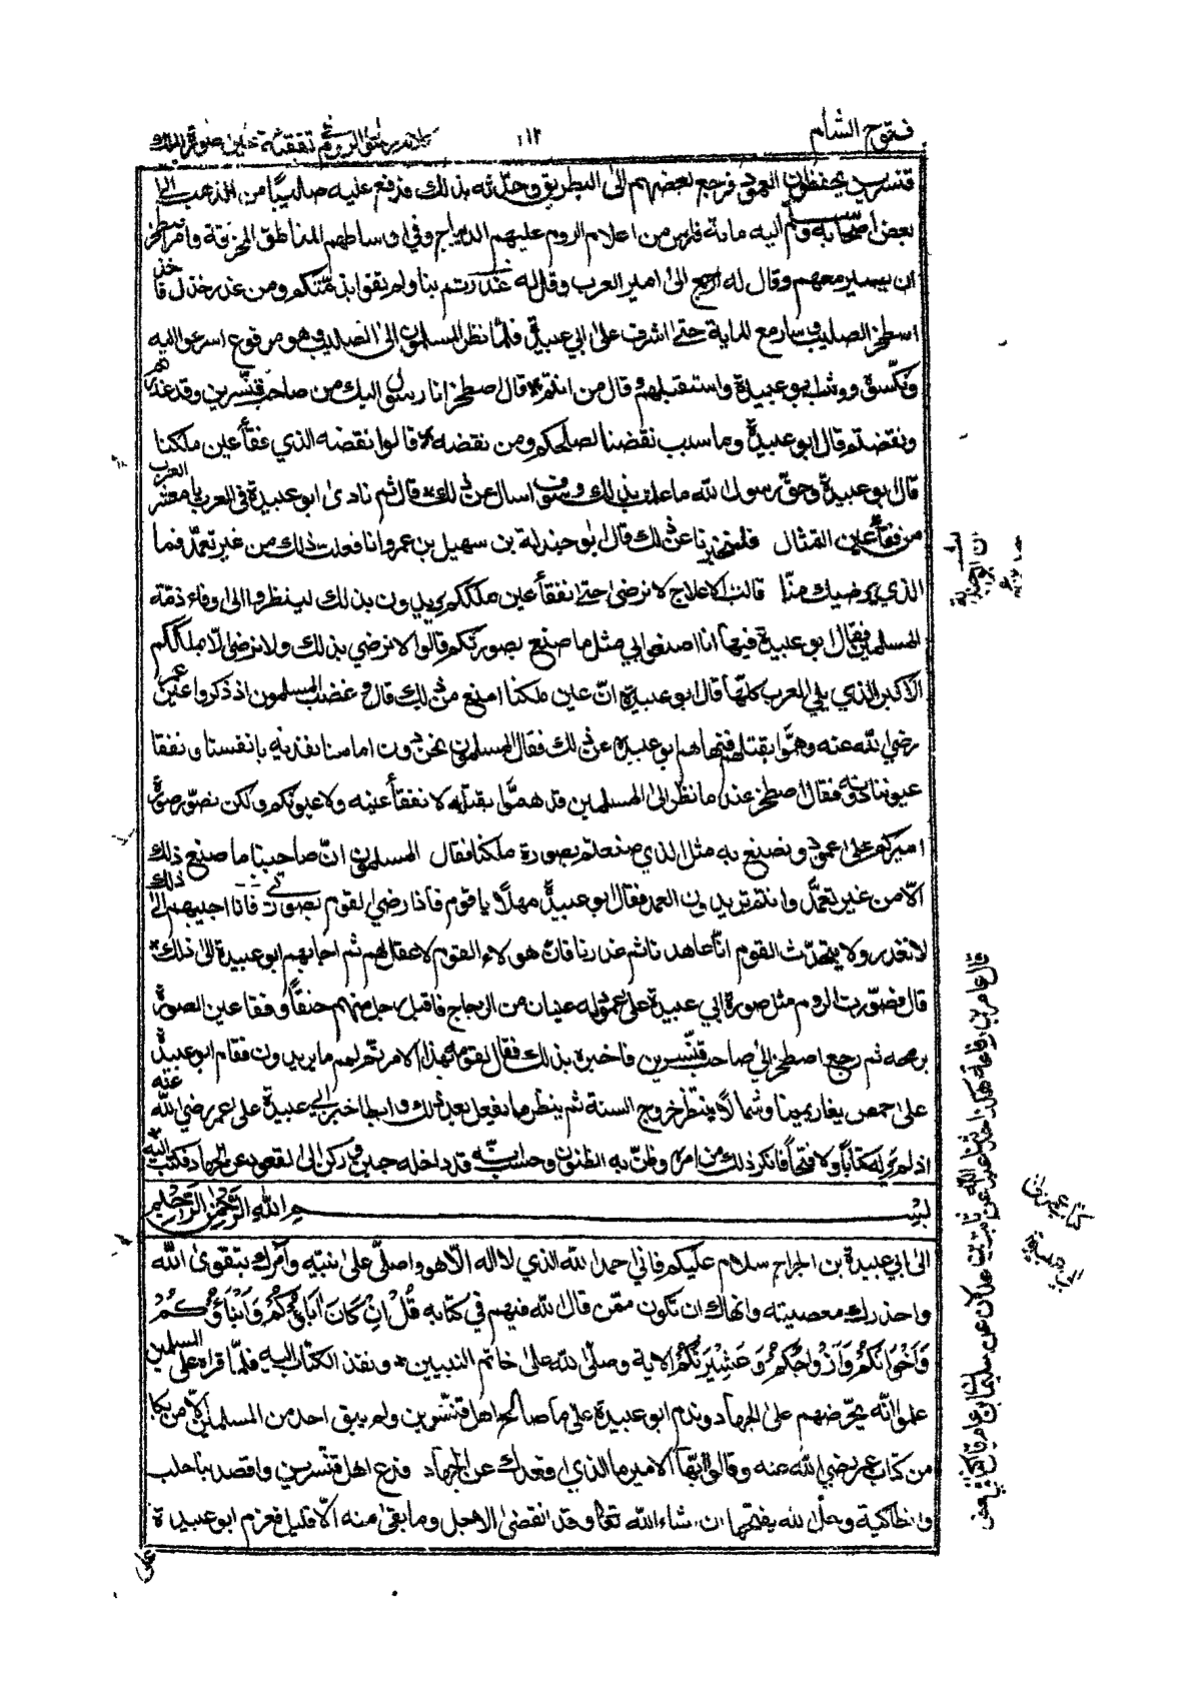 فتوح الشام
١١٢
قنسرين يحفظون العمود فرجع بعضهم الى البطريق وحدّثه بذلك فدفع عليه صليبًا من الذهب الى
بعض اصحابه وسلم اليه مائة فارس من اعلام الروم عليهم الديباج وفي اوساطهم المناطق المحزقة وامر اصطخر
ان يسير معهم وقال له ارجع الى امير العرب وقل له غدرتم بنا ولم تفوا بذمّتكم ومن غدر خذل فاخذ
اسطخر الصليب وسار مع المراية حتى اشرف على ابي عبيدة فلمّا نظر المسلمون الى الصليب وهو مرفوع اسرعوا اليه
ونكّسوة ووثب ابو عبيدة واستقبلهم وقال من انتم قال اصطخر انا رسول اليك من صاحب قنّسرين وقد غدرتم
ونقضتم قال ابو عبيدة وما سبب نقضنا لصلحكم ومن نقضه قالوا نقضه الذي فقأ عين ملكنا
قال ابو عبيدة وحقّ رسول الله ما علمت بذلك وسوف اسال عن ذلك قال ثم نادى ابو عبيدة في العرب يا معشر العرب
من فقأ عين التمثال فليخبرنا عن ذلك قال ابو جندلة بن سهيل بن عمرو انا فعلت ذلك من غير تعمّد فما
الذي يرضيك منّا قالت الاعلاج لا نرضى حتى نفقأ عين ملككم يريدون بذلك لينظروا الى وفاء ذمّة
المسلمين فقال ابو عبيدة فيها انا اصنعوا بي مثل ما صنع بصورتكم قالوا لا نرضي بذلك ولا نرضى الّا بملككم
الاكبر الذي يلي العرب كلّها قال ابو عبيدة انّ عين ملكنا امنع من ذلك قال وغضب المسلمون اذ ذكروا عين عمر
رضي الله عنه وهمّوا بقتلهم فنهاهم ابو عبيدة عن ذلك فقال المسلمون نحن دون امامنا نفديه بانفسنا ونفقا
عيوننا دونه فقال اصطخر عند ما نظر الى المسلمين قد همّوا بقتله لا نفقأ عينه ولا عيونكم ولكن نصوّر صورة
اميركم على عمود ونصنع به مثل الذي صنعتم بصورة ملكنا فقال المسلمون انّ صاحبنا ما صنع ذلك
الّا من غير تعمّد وانتم تريدون العمد فقال ابو عبيدة مهلًا يا قوم فاذا رضي القوم بصورتي فانا اجيبهم الى ذلك
لا نغدر ولا يتحدّث القوم انّا عاهدنا ثم غدرنا فانّ هولاء القوم لا عقل لهم ثم اجابهم ابو عبيدة الى ذلك
قال فصوّرت الروم مثل صورة ابي عبيدة على عمود له عينان من الزجاج فاقبل رجل منهم حنقًا وفقا عين الصورة
برمحه ثم رجع اصطخر الى صاحب قنّسرين فاخبره بذلك فقال لقومه بهذا الامر تمّ لهم ما يريدون فقام ابو عبيدة
على حمص يغار يمينا وشمالًا ينتظر خروج السنة ثم ينظر ما يفعل بعد ذلك وابطا خبر ابي عبيدة على عمر رضي الله عنه
اذ لم ير له كتابًا ولا فتحًا فانكر ذلك من امره وظنّ به الظنون وحسب انّه قد داخله جبن وركن الى القعود عن الجهاد فكتب اليه
بسم الله الرّحمٰن الرّحيم
الى ابي عبيدة بن الجراح سلام عليكم فاني احمد الله الذي لا اله الّا هو واصلّي على نبيّه وآمرك بتقوى الله
واحذرك معصيته وانهاك ان تكون ممّن قال الله فيهم في كتابه قُلْ اِنْ كَانَ اٰبَاؤُكُمْ وَاَبْنَاؤُكُمْ
وَاَخْوَانُكُمْ وَاَزْوَاجُكُمْ وَعَشِيْرَتُكُمْ الاية وصلّى الله على خاتم النبيين ونفذ الكتاب اليه فلمّا قراه على المسلمين
علموا انّه يحرّضهم على الجهاد وندم ابو عبيدة على ما صالح اهل قنّسرين ولم يبق احد من المسلمين الّا من بكا
من كتاب عمر رضي الله عنه وقالوا ايّها الامير ما الذي اقعدك عن الجهاد فدع اهل قنّسرين واقصد بنا حلب
وانطاكية ولعلّ الله يفتحها ان شاء الله تعالى وقد انقضى الاجل وما بقى منه الّا قليل فعزم ابو عبيدة
على
كتاب عمر الى ابي عبيدة